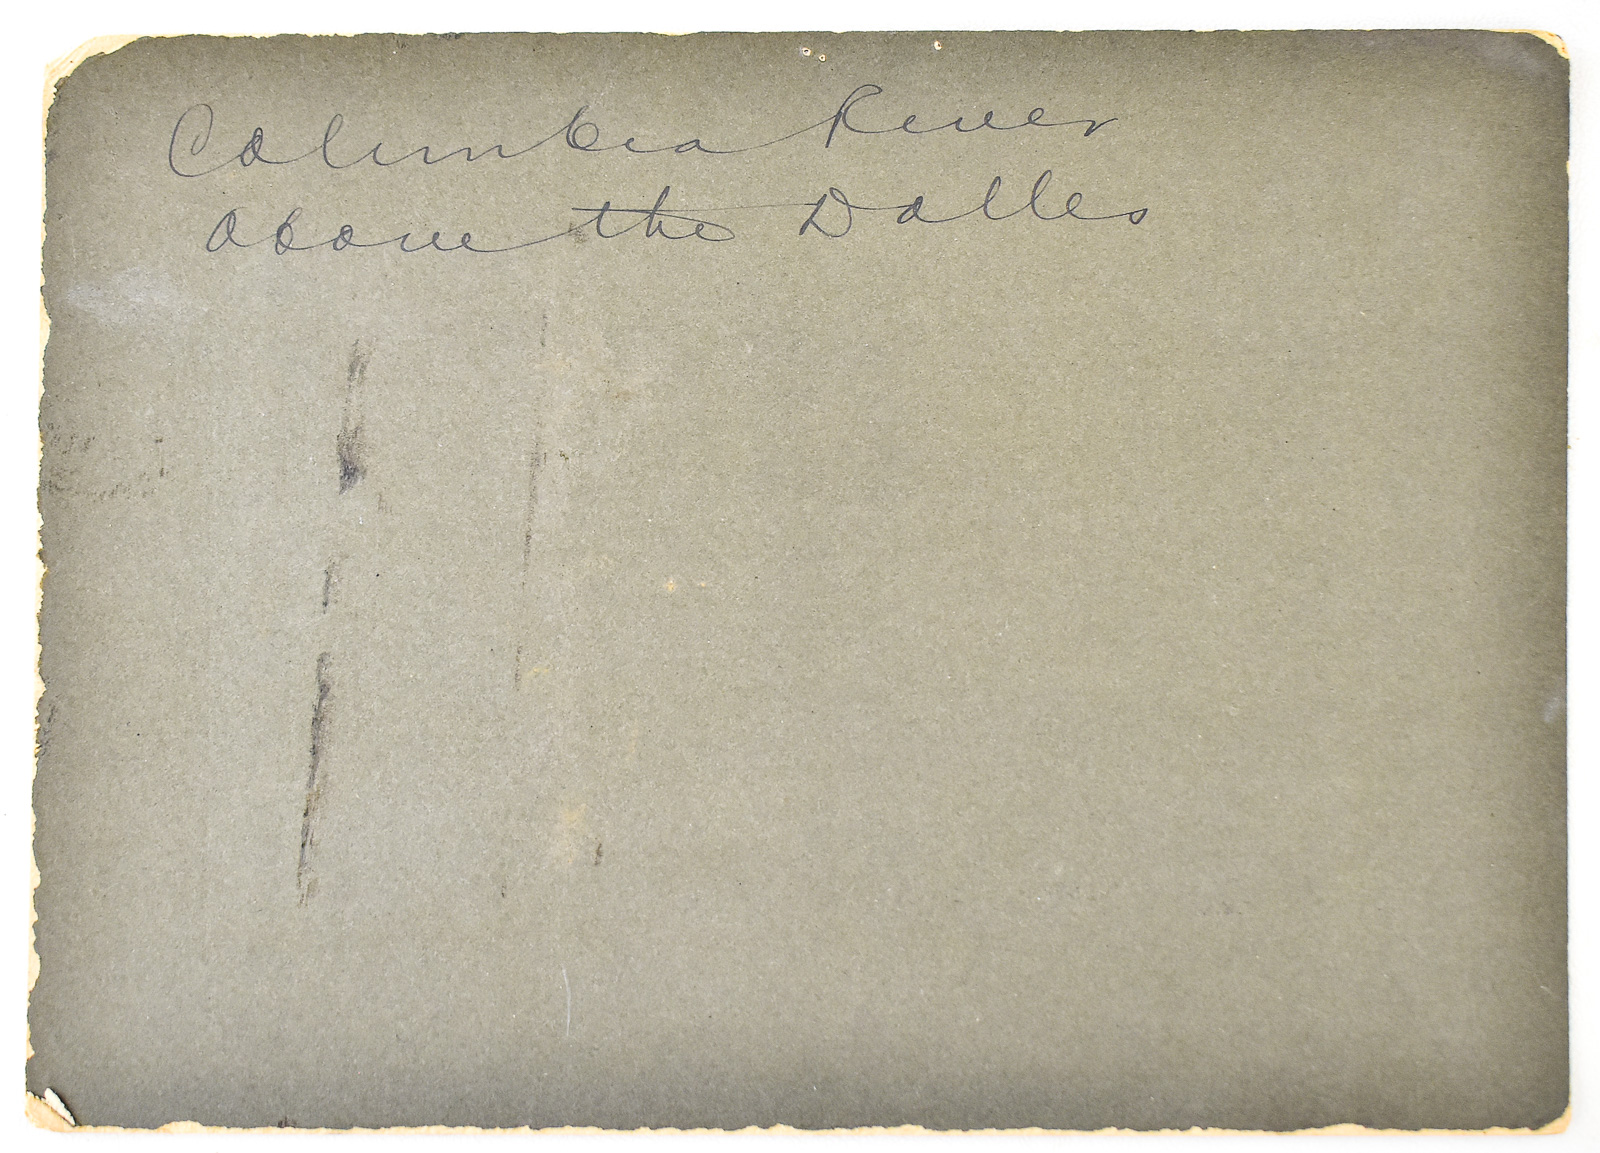 Columbia River
above the Dalles